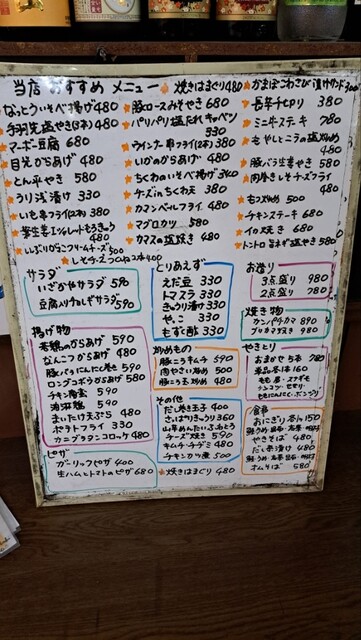 当店 おすすめ メニュー
焼きはまぐり480
かまぼこわさび漬けサンド300
なっとういそべ揚げ480
豚ロースみそやき 680
長芋千切り 380
手羽先塩やき(2本)480
パリパリ塩だれキャベツ 330
ミニ牛ステーキ 780
マーボー豆腐 680
ウインナー串フライ(2本) 380
もやしとニラの塩炒め 480
目光からあげ 480
いかのからあげ 480
豚バラ生姜やき 580
とん平やき 580
ちくわのいそべ揚げ 340
肉巻きしそチーズフライ 480
うり浅漬け 330
チーズinちくわ天 380
もつ炒め 500
いも串フライ(2本)380
カマンベールフライ 480
チキンステーキ 680
マグロカツ 580
イカ焼き 680
480
カマスの塩焼き 480
トントロ 旨ネギ塩やき 580
いぶりがっこクリームチーズ 500
しそチーズつくね2本400
サラダ
いざかやサラダ 590
豆腐入りチョレギサラダ 590
とりあえず
えだ豆 330
トマスラ 330
きゅうり漬け 330
やっこ 330
もずく酢 330
お造り
3点盛り 980
2点盛り 780
焼き物
カンパチカマ 890
ブリカマ焼き 980
揚げ物
若鶏のからあげ 590
なんこつからあげ 480
豚バラにんにく巻き 590
ロングゴボウからあげ 580
チキン南蛮 590
油淋鶏 590
まいたけ天ぷら 480
ポテトフライ 330
カニグラタンコロッケ 480
炒めもの
豚ニラキムチ 690
肉やさい炒め 500
豚ニラ玉炒め 480
やきとり
おまかせ 5本 780
単品各1本160
その他
だし巻き玉子 400
さいぼしきゅうり360
山芋めんたいふわとろ
チーズ焼き 590
キムチチヂミ 480
チキンカツ煮 500
焼きはまぐり 480
食事
おにぎり 各1ヶ150
やきそば 480
だし茶漬け 480
オムそば 580
ピザ
ガーリックピザ 400
生ハムとトマトのピザ 680